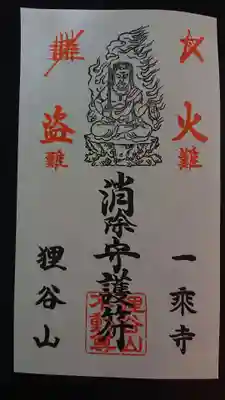 火難
消除守護符
盗難
一乗寺
狸谷山
狸谷山
不動尊